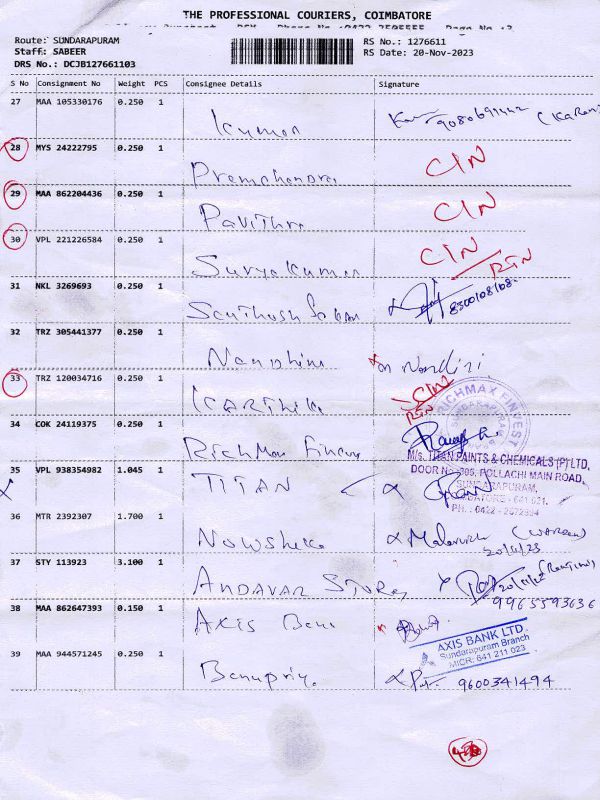 THE PROFESSIONAL COURIERS, COIMBATORE
Route: SUNDARAPURAM
RS No.: 1276611
Staff: SABEER
RS Date: 20-Nov-2023
DRS No.: DCJB127661103
S No Consignment No Weight PCS Consignee Details Signature
27 MAA 105330176 0.250 1 Kumar
28 MYS 24222795 0.250 1 Premchandra CIN
29 MAA 862204436 0.250 1 Pavithra CIN
30 VPL 221226584 0.250 1 Suryakumar CIN RTN
31 NKL 3269693 0.250 1 Santhosh
32 TRZ 305441377 0.250 1
33 TRZ 120034716 0.250 1 Karthika CIN RTN
RICHMAX FINVEST
SUNDARAPURAM
34 COK 24119375 0.250 1 RichMax
M/s. TITAN PAINTS & CHEMICALS (P) LTD,
DOOR No. POLLACHI MAIN ROAD,
SUNDARAPURAM,
35 VPL 938354982 1.045 1 TITAN
COIMBATORE - 641 021.
PH.: 0422 -
36 MTR 2392307 1.700 1 Nowshika
20/11/23
37 STY 113923 3.100 1 ANDAVAR STORES
9965593636
38 MAA 862647393 0.150 1 AXIS
AXIS BANK LTD
Sundarapuram Branch
MICR: 641 211 023
39 MAA 944571245 0.250 1 Banupriya
9600341494